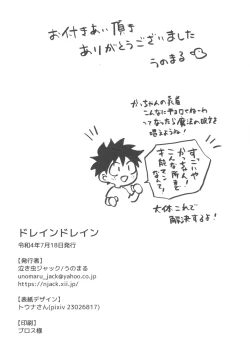 お付きあい頂き
ありがとうございました
うのまる
かっちゃんの乳首
こんなにチョロくねーわ
ってなったら魔法の呪文を
唱えようね!
すっごいや
かっちゃん!
こんな所まで
才能マンなんて!
大体これで
解決するよ!
ドレインドレイン
令和4年7月18日発行
【発行者】
泣き虫ジャック/うのまる
unomaru_jack@yahoo.co.jp
https://njack.xii.jp/
【表紙デザイン】
トウナさん(pixiv 23026817)
【印刷】
プロス様